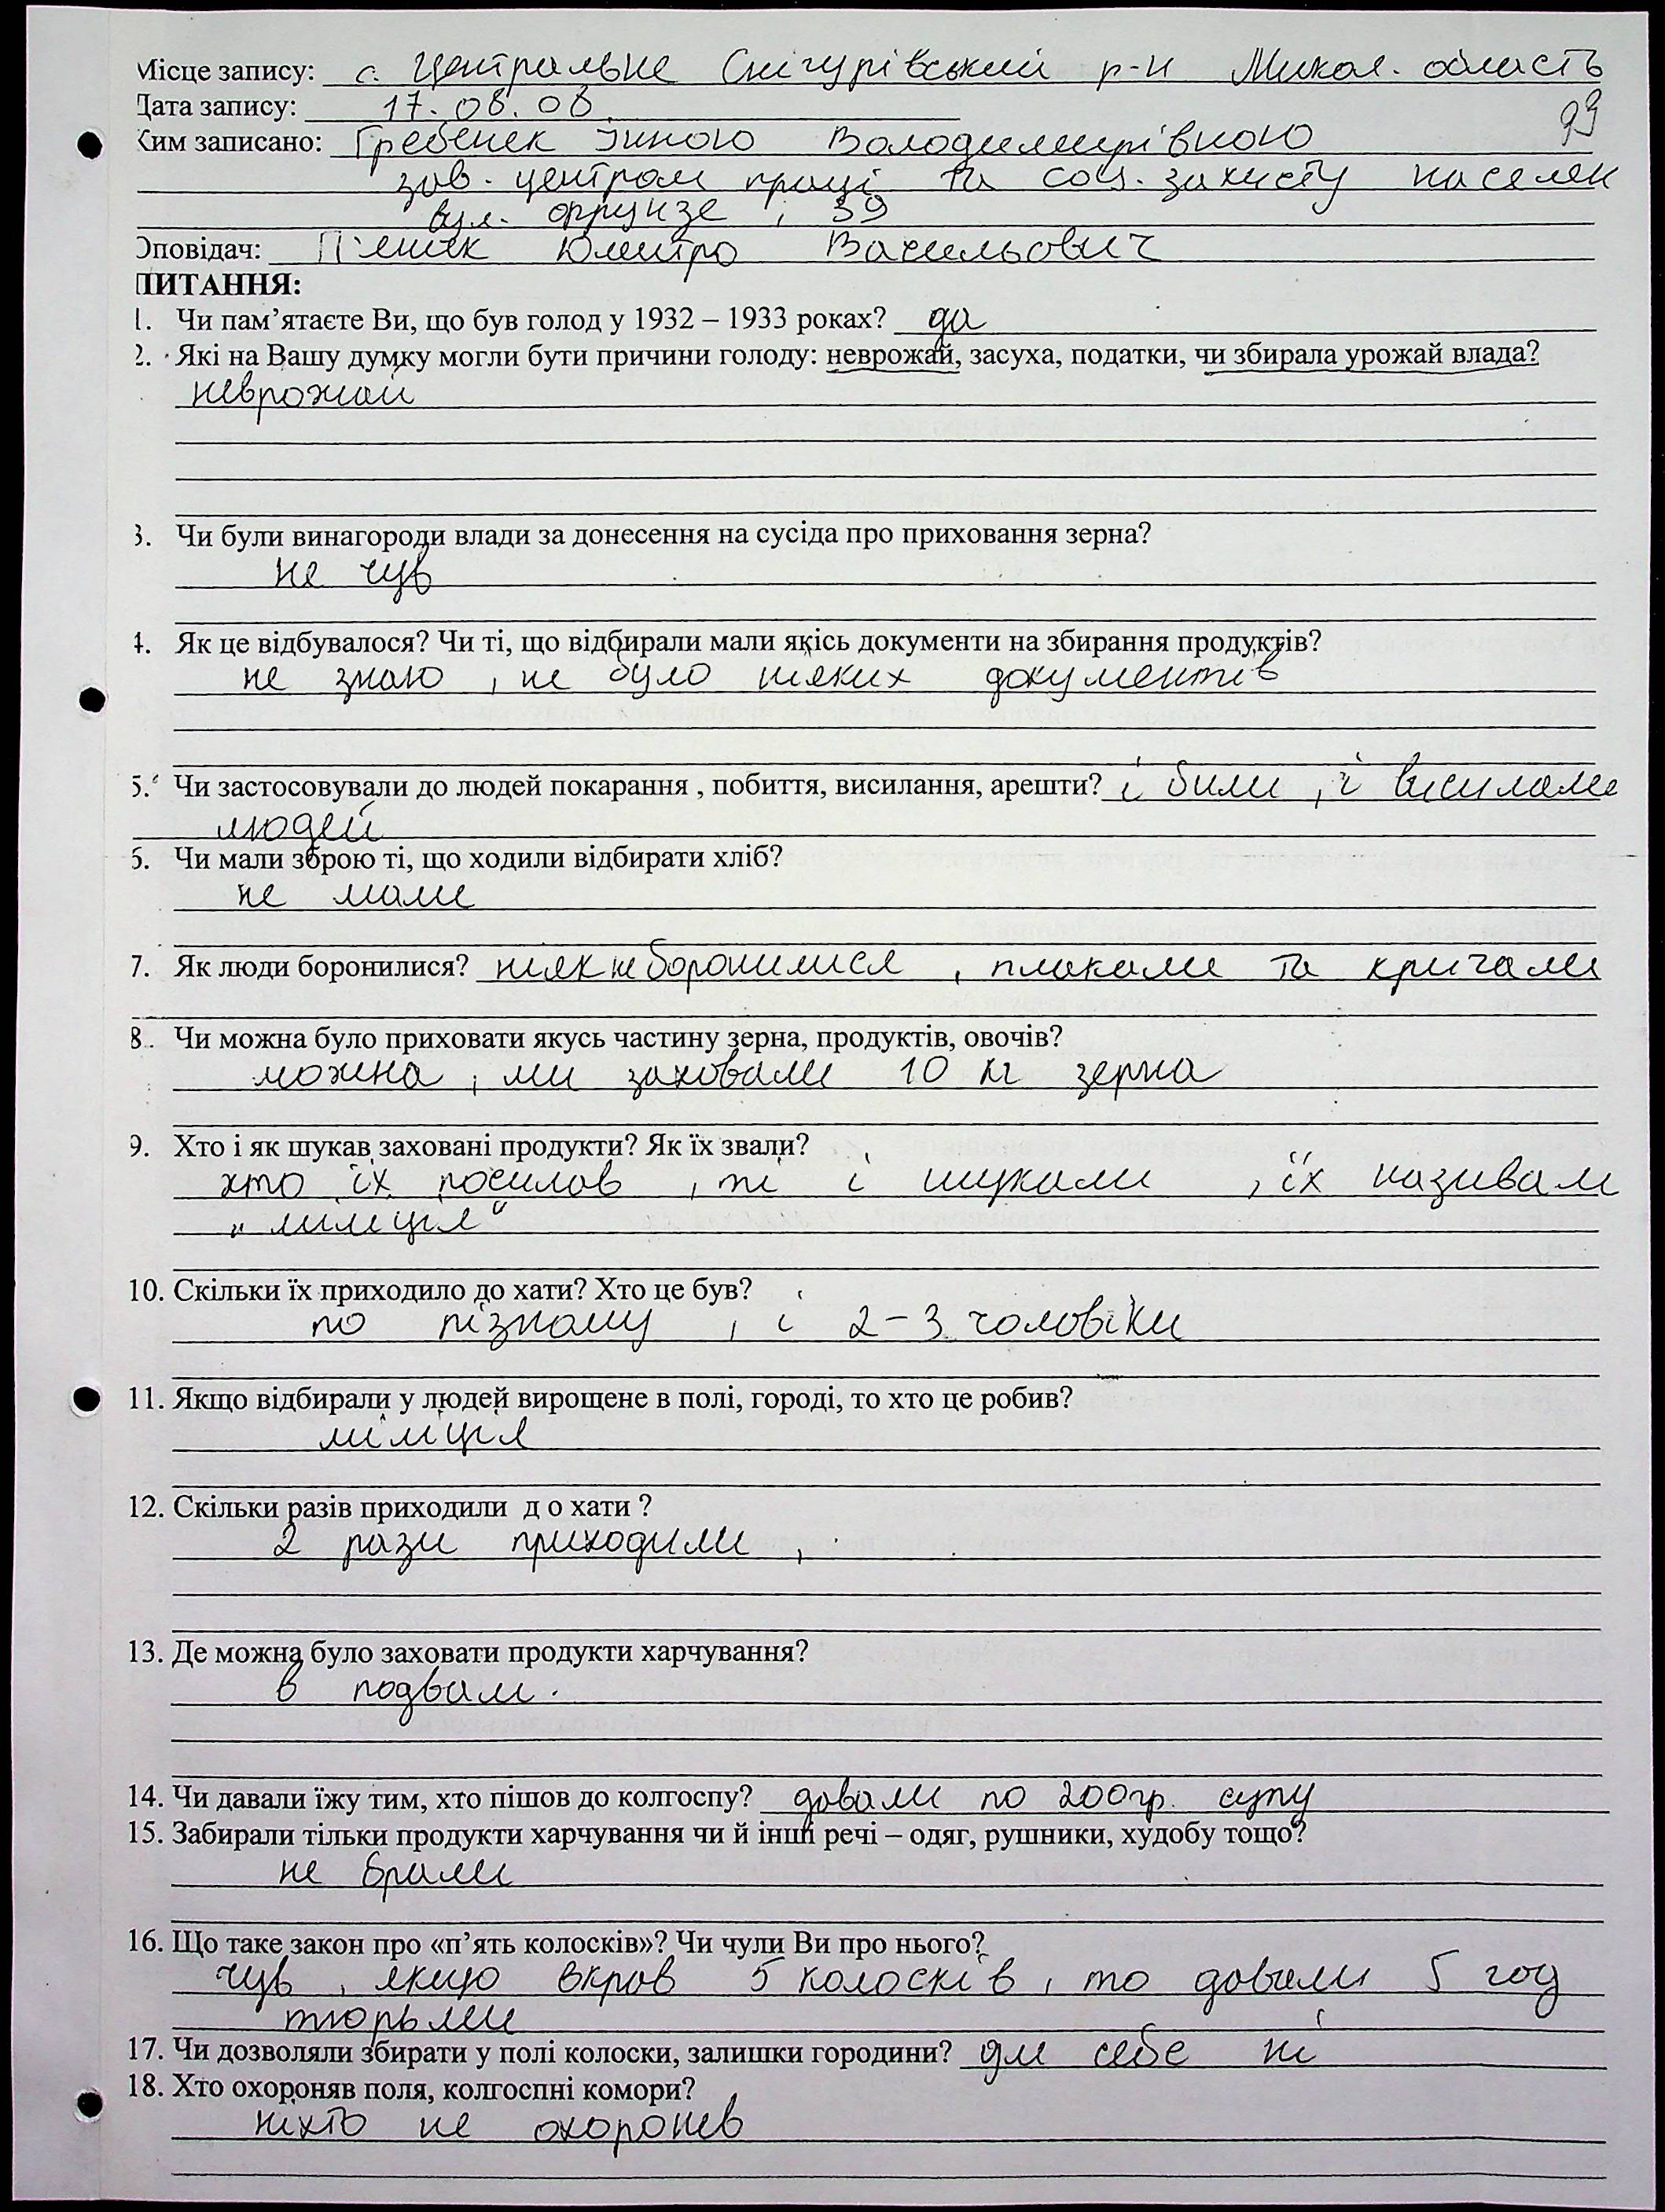 Місце запису: с. Центральне Снігурівський р-н Микол. область
Дата запису: 17.08.08
93
Ким записано: Гребенек Інною Володимирівною
зав. центром праці та соц. захисту населен
вул. Фрунзе, 39
Оповідач: Дмитро Васильович
ПИТАННЯ:
1. Чи пам’ятаєте Ви, що був голод у 1932 – 1933 роках? да
2. Які на Вашу думку могли бути причини голоду: неврожай, засуха, податки, чи збирала урожай влада?
неврожай
3. Чи були винагороди влади за донесення на сусіда про приховання зерна?
не чув
4. Як це відбувалося? Чи ті, що відбирали мали якісь документи на збирання продуктів?
не знаю, не було ніяких документів
5. Чи застосовували до людей покарання , побиття, висилання, арешти? і били, і висилали
людей
6. Чи мали зброю ті, що ходили відбирати хліб?
не мали
7. Як люди боронилися? ніяк не боронилися, плакали та кричали
8. Чи можна було приховати якусь частину зерна, продуктів, овочів?
можна, ми заховали 10 кг зерна
9. Хто і як шукав заховані продукти? Як їх звали?
хто їх посилав, ті і шукали, їх називали
„міліція“
10. Скільки їх приходило до хати? Хто це був?
по різному, і 2–3 чоловіки
11. Якщо відбирали у людей вирощене в полі, городі, то хто це робив?
міліція
12. Скільки разів приходили д о хати ?
2 рази приходили,
13. Де можна було заховати продукти харчування?
в подвалі.
14. Чи давали їжу тим, хто пішов до колгоспу? давали по 200гр. супу
15. Забирали тільки продукти харчування чи й інші речі – одяг, рушники, худобу тощо?
не брали
16. Що таке закон про «п’ять колосків»? Чи чули Ви про нього?
чув, якщо вкрав 5 колосків, то давали 5 год
тюрьми
17. Чи дозволяли збирати у полі колоски, залишки городини? для себе ні
18. Хто охороняв поля, колгоспні комори?
ніхто не охоронев